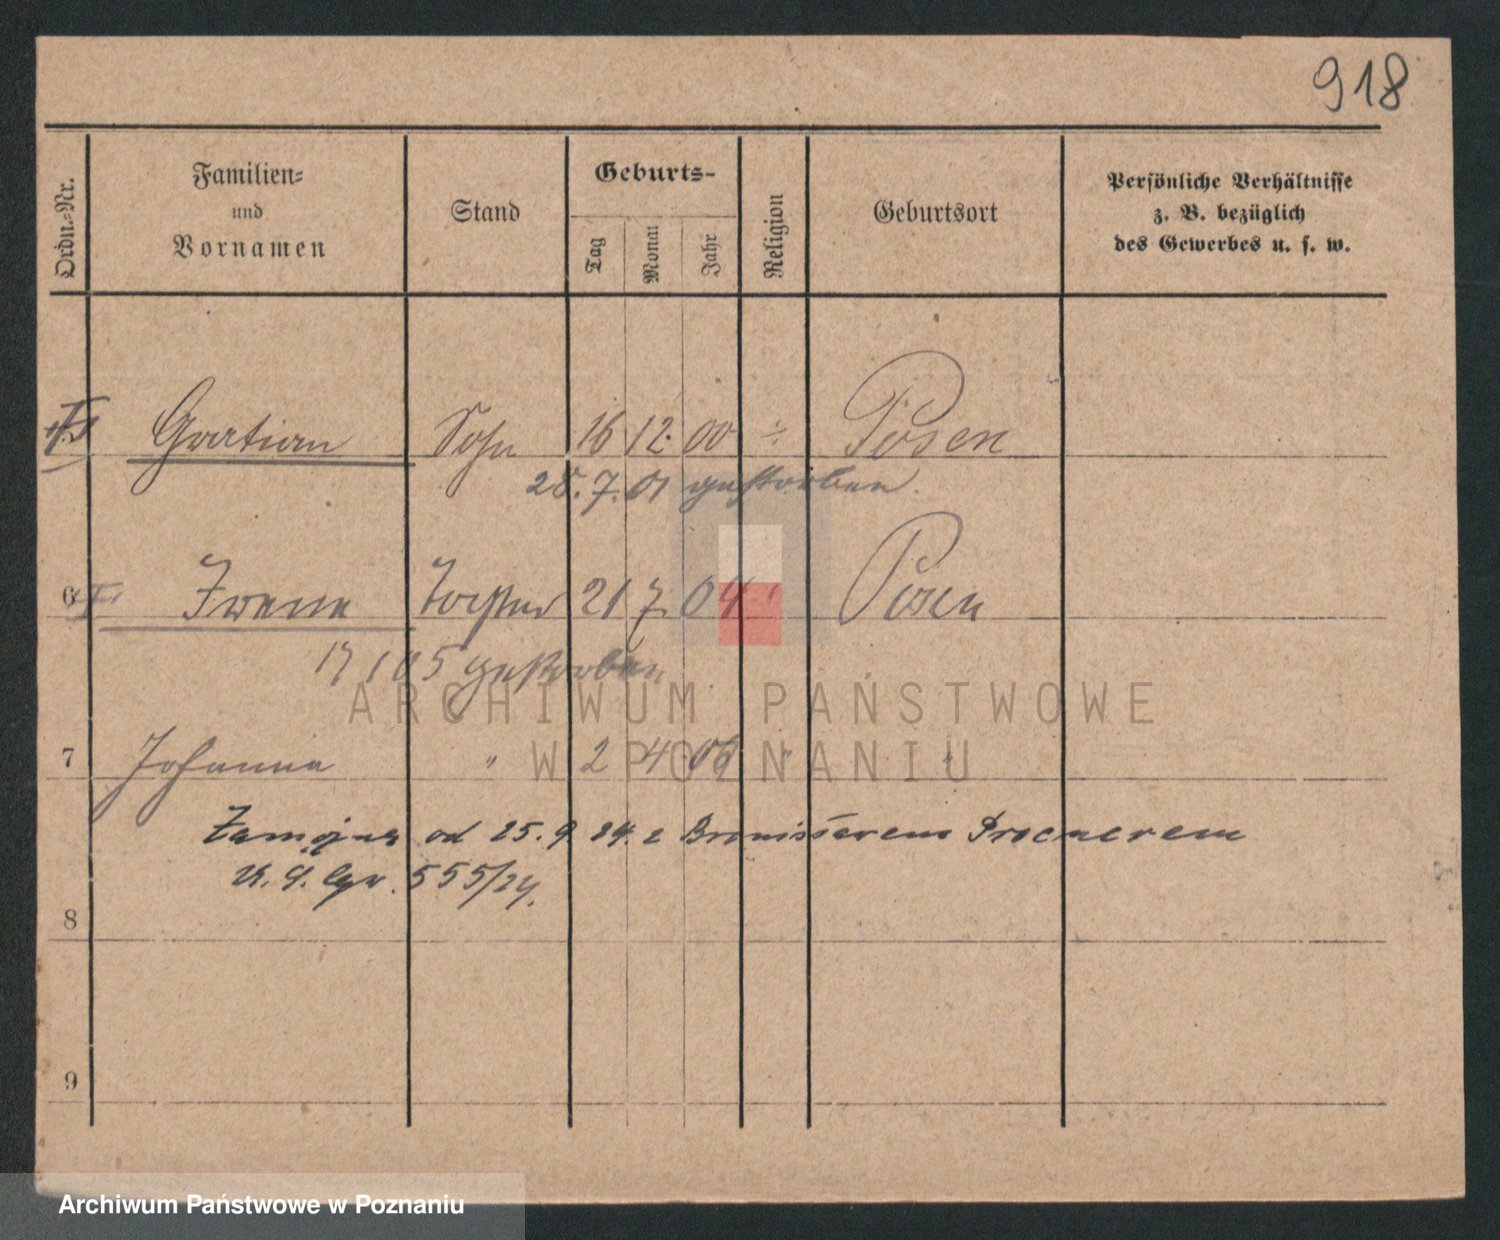 918
Ordn.-Nr.
Familien-
und
Vornamen
Stand
Geburts-
Tag
Monat
Jahr
Religion
Geburtsort
Persönliche Verhältnisse
z. B. bezüglich
des Gewerbes u. s. w.
Gratian Sohn 16 12. 00 Posen
28. 7. 01 gestorben.
6 Irene Tochter 21 7 04 " Posen
17 1 05 gestorben
ARCHIWUM PAŃSTWOWE
W POZNANIU
7 Johanna " 2 4 06 " "
Zamężna od 25. 9 24. z Bronisławem
555/24.
8
9
Archiwum Państwowe w Poznaniu